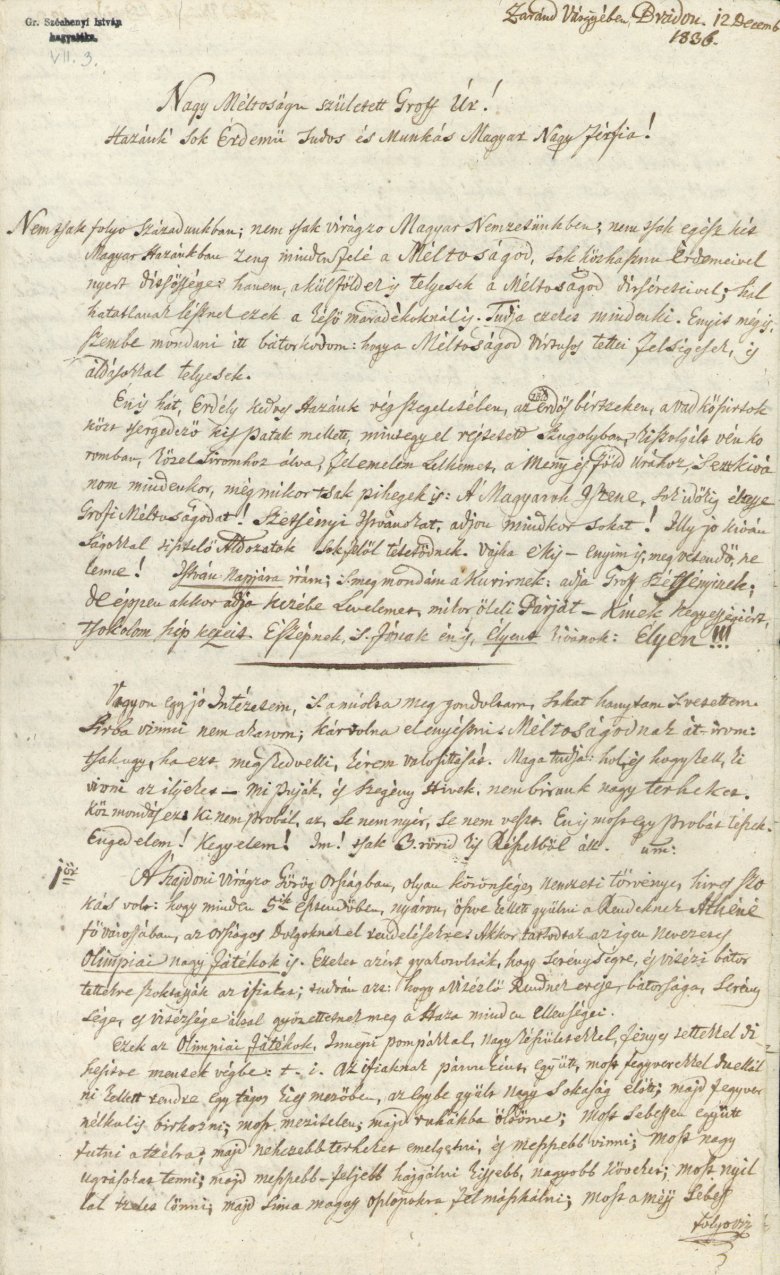 Gr. Széchenyi István
hagyatéka.
VII. 3.
Zaránd Vármgyében, Brádon. 12 Decemb
1836.
Nagy Méltoságu született Groff Úr!
Hazánk' sok Érdemü Tudos és Munkás Magyar Nagy Férfia!
Nem tsak folyo Századunkban; nem tsak virágzo Magyar Nemzetünkben; nem tsak egész két
Magyar Hazánkban zeng mindenfelé a Méltoságod, sok közhasznu Érdemeivel
nyert ditsőssége: hanem, a külföldek is telyesek a Méltoságod dítséreteivel; hál
hatatlanok lésznek ezek a késő maradékoknál is. Tudja ezeket mindenki. Ennyit mégis,
szembe mondani itt bátorkodom: hogy a Méltoságod Virtusos tettei Felségesek, és
áldásokkal telyesek.
Én is hát, Erdély kedves Hazánk vég szegeletében, az Erdős bértzeken, a vad kőszirtok
közt tsergedező kis patak mellett, mintegy el rejtetett Szugolyban, kiszolgált vén ko
romban, közel Siromhoz álva, fel emelém Lelkemet, a Meny és Föld Urához, s ezt kivá
nom mindenkor, még mikor tsak pihegek is: A' Magyarok Istene, sok időkig éltesse
Grofi Méltoságodat! Szétsényi Istvánokat, adjon mindkor sokat! Illy jo kiván
ságokkal Áldozatok sok felől tétetődnek. Vajha e' kis – enyim is, meg vetendő, ne
lenne! István Napjára irám; s meg mondám a kurirnek: adja Groff Széttsényinek;
de éppen akkor adja kezébe Levelemet, mikor öleli Párját – Kinek kegyességiért,
tsokolom szép kezeit. E' szépnek, s Jónak én is, Élyent kivánok: Élyen!!!
Vagyon egy jó Intézetem, s annúlsa meg gondoltam, sokat hánytam s vetettem.
Sirba vinni nem akarom; kár volna el enyészni. Méltoságodnak át irom:
tsak ugy, ha ezt meg kedvelli, kérem valositását. Maga tudja: hol, és hogy kell, ki
vivni az iljeket – Mi Papják, és szegény Hivek, nem birunk nagy terheket.
Köz mondás ez: Ki nem probál, az, se nem nyér, se nem veszt. Én is most egy probát tészek.
Engedelem! Kegyelem! Im! tsak 3. rövid kis Részekből áll. um:
1ör A' hajdoni virágzo Görög Országban, olyan közönséges nemzeti törvény, hires szo
kás volt: hogy minden 5ik esztendőben, nyáron, öszve kellett gyűlni a Rendeknek Athéné
fő várossában, az országos Dolgoknak el rendelésekre. Akkor tartodtak az igen nevezetes
Olimpiai nagy Játékok is. Ezeket azért gyakorolták, hogy serénységre, és vitézi bátor
tettekre szoktassák az ifiakat; tudván azt: hogy a vitézlő Rendnek ereje, bátorsága, serény
sége, és vitézsége által győzettetnek meg a Haza minden ellenségei.
Ezek az Olimpiai Játékok, Innepi pompákkal, nagy készületekkel, fényes tettekkel di
kesitve mentek végbe: t. i. Az ifiaknak páronként, együtt, most fegyverekkel duellál
ni kellett rendre egy tágos kies mezőben, az egybe gyűlt nagy Sokaság előtt; majd fegyver
nélkul is birkozni; most mezitelen; majd ruhákba öltözve; most sebessen együtt
futni a tzélra; majd nehezebb terheket emelgetni, és messzebb vinni; most nagy
ugrásokat tenni; majd messzebb – feljebb hajgálni kissebb, nagyobb köveket; most nyil
lal tzélra lőni; majd sima magas oszlopokra fel mászkálni; most a mély sebess
folyoviz